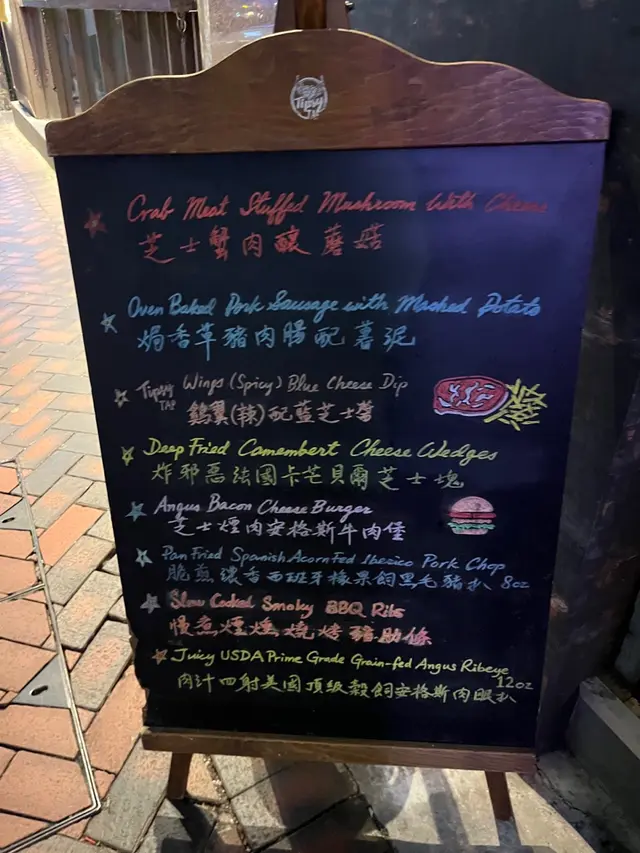 Tipsy
Crab Meat Stuffed Mushroom With Cheese
芝士蟹肉釀蘑菇
Oven Baked Pork Sausage with Mashed Potato
焗香草豬肉腸配薯泥
Tipsy TAP Wings (Spicy) Blue Cheese Dip
鷄翼(辣)配藍芝士醬
Deep Fried Camembert Cheese Wedges
炸邪惡法國卡芒貝爾芝士塊
Angus Bacon Cheese Burger
芝士煙肉安格斯牛肉堡
Pan Fried Spanish Acorn Fed Iberico Pork Chop
脆煎濃香西班牙橡果飼黑毛豬扒 8oz
Slow Cooked Smoky BBQ Ribs
慢煮煙燻燒烤豬肋條
Juicy USDA Prime Grade Grain-fed Angus Ribeye
肉汁四射美國頂級穀飼安格斯肉眼扒 12oz